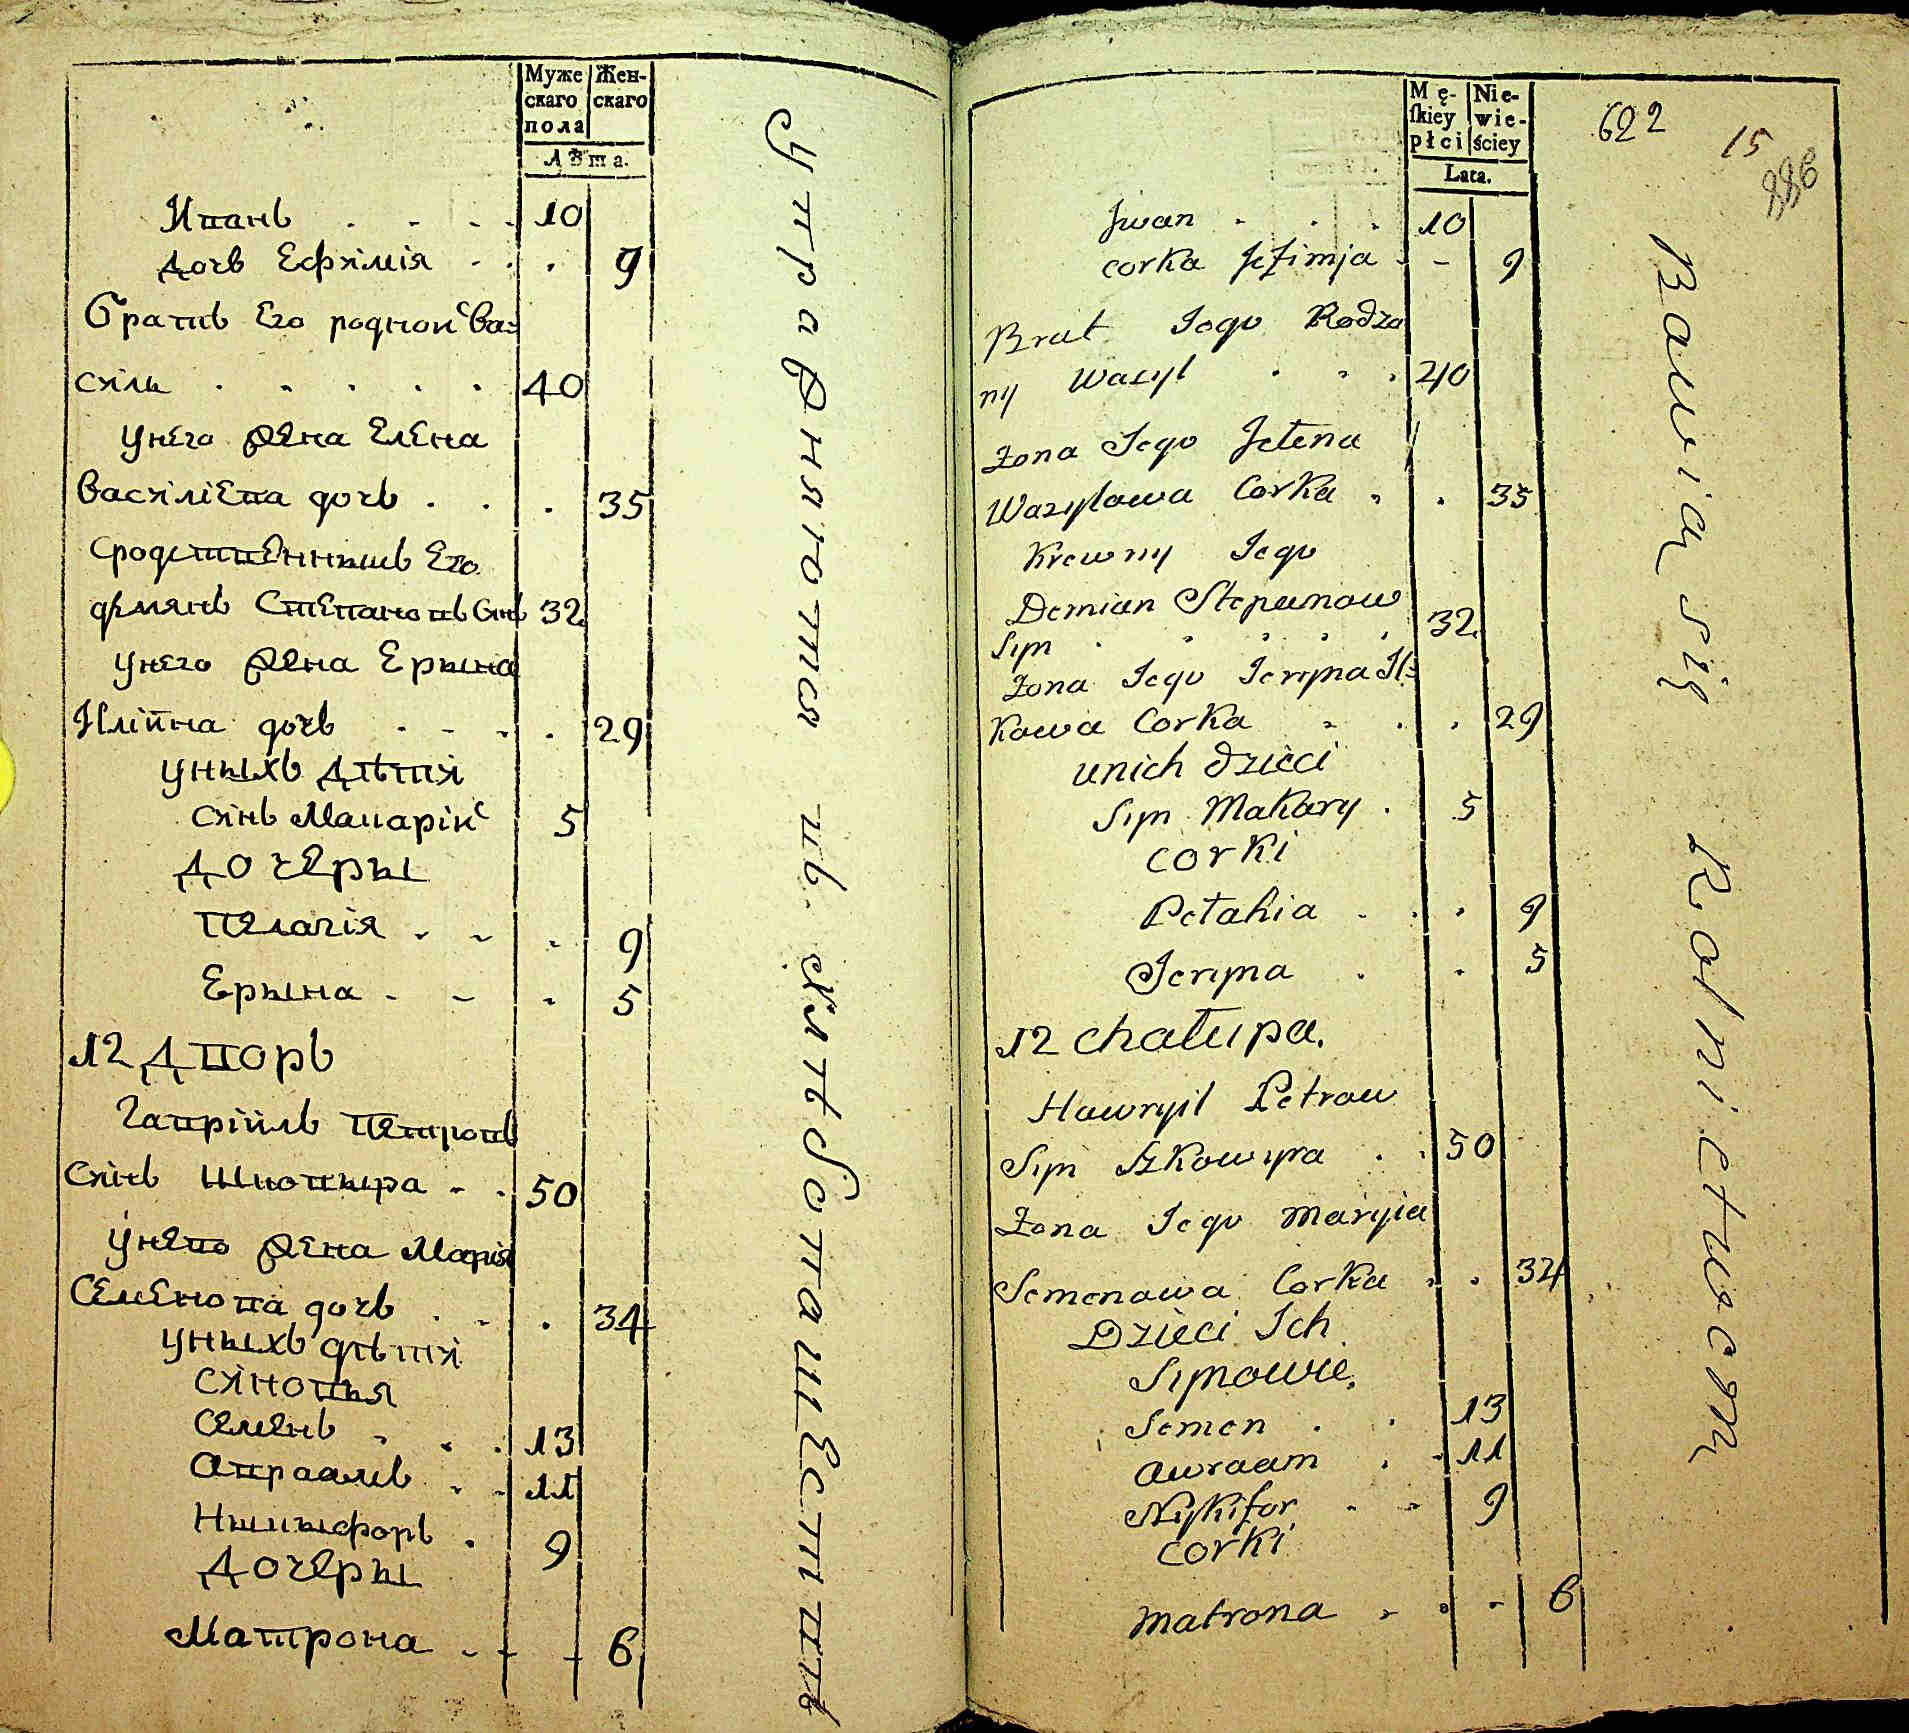 Муже Жен-
скаго скаго
пола
Лѣта.
Иванъ 10
дочь Ефимія 9
Братъ Его родной Ва=
силь 40
унего жена Елена
Василіева дочь 35
Сродственныкъ Его
демянъ Степановъ Снъ 32
унего жена Ерына
Илійна дочь 29
уныхъ дѣти
синъ Макарій 5
дочеры
Пелагія 9
Ерына 5
12 Дворъ
Гавріилъ Петровъ
Синъ Шковыра 50
унево жена Марія
Семенова дочь 34
уныхъ дѣти
Синовья
Семенъ 13
Авраамъ 11
Ныкыфоръ 9
дочеры
Матрона 6
упражняются въ хлѣбопашествѣ
Mę- Nie-
skiey wie-
płci ściey
Lata.
622
15
Jwan 10
corka Jefimja 9
Brat Jego Rodzo
ny Wasyl 40
Żona Jego Jelena
Wasylowa Corka 35
Krewny Jego
Demian Stepanow
Syn 32
Żona Jego Jeryna Il=
kowa Corka 29
unich dzieci
Syn Makary 5
corki
Pełahia 9
Jeryna 5
12 chałupa.
Hawryił Petrow
Syn Szkowyra 50
Żona Jego Maryia
Semenowa Corka 34
Dzieci Ich
Synowie,
Semen 13
Awraam 11
Nykifor 9
corki
Matrona 6
Bawią się Rolnictwem